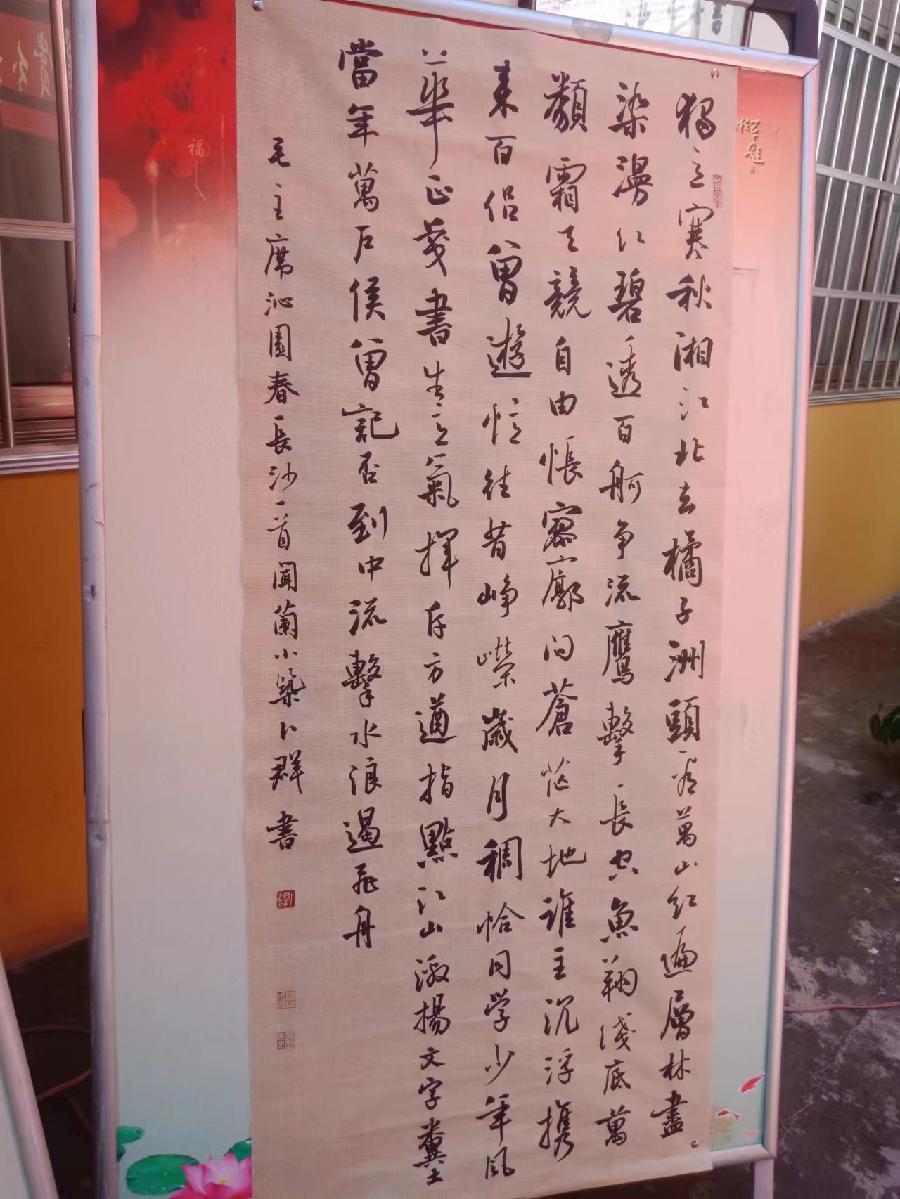 獨立寒秋湘江北去橘子洲頭看萬山红遍層林盡
染漫江碧透百舸争流鷹擊長空魚翔淺底萬
類霜天競自由悵寥廓问蒼茫大地誰主沉浮携
来百侣曾遊憶往昔崢嶸歲月稠恰同学少年风
華正茂書生意氣揮斥方遒指點江山激揚文字糞土
當年萬户侯曾記否到中流擊水浪遏飛舟
毛主席沁園春長沙一首聞蘭小築卜群書
福